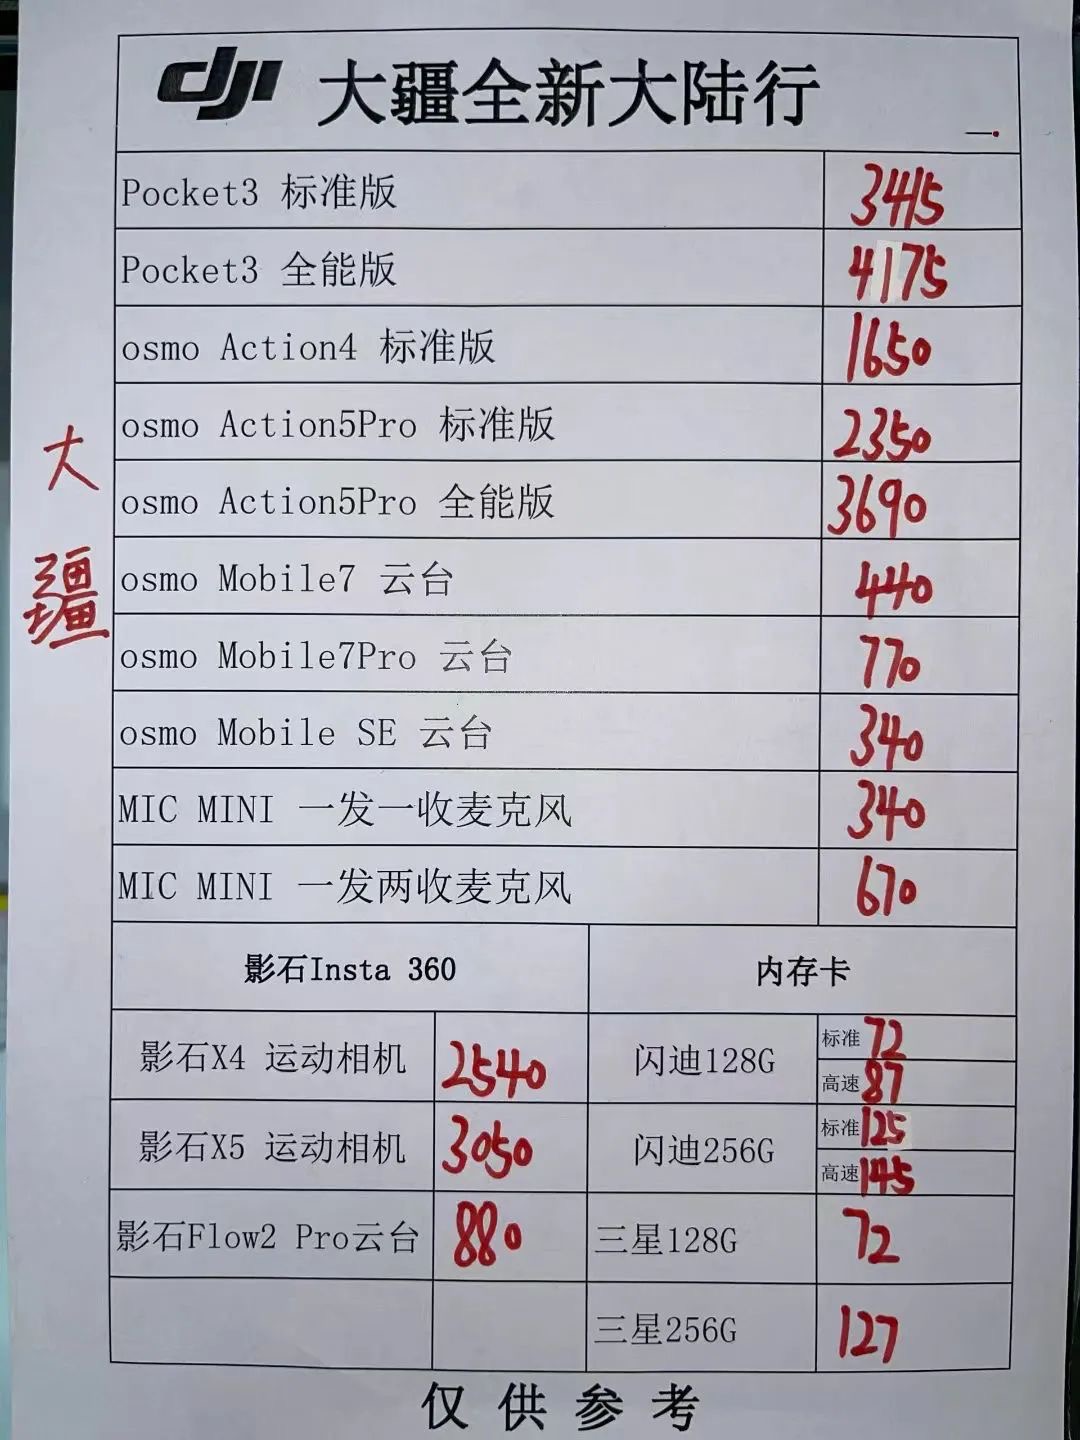 dji 大疆全新大陆行
Pocket3 标准版 3415
Pocket3 全能版 4175
osmo Action4 标准版 1650
osmo Action5Pro 标准版 2350
osmo Action5Pro 全能版 3690
osmo Mobile7 云台 440
osmo Mobile7Pro 云台 770
osmo Mobile SE 云台 340
MIC MINI 一发一收麦克风 340
MIC MINI 一发两收麦克风 670
大疆
影石Insta 360 内存卡
影石X4 运动相机 2540 闪迪128G 标准 72
高速 87
影石X5 运动相机 3050 闪迪256G 标准 125
高速 145
影石Flow2 Pro云台 880 三星128G 72
三星256G 127
仅供参考